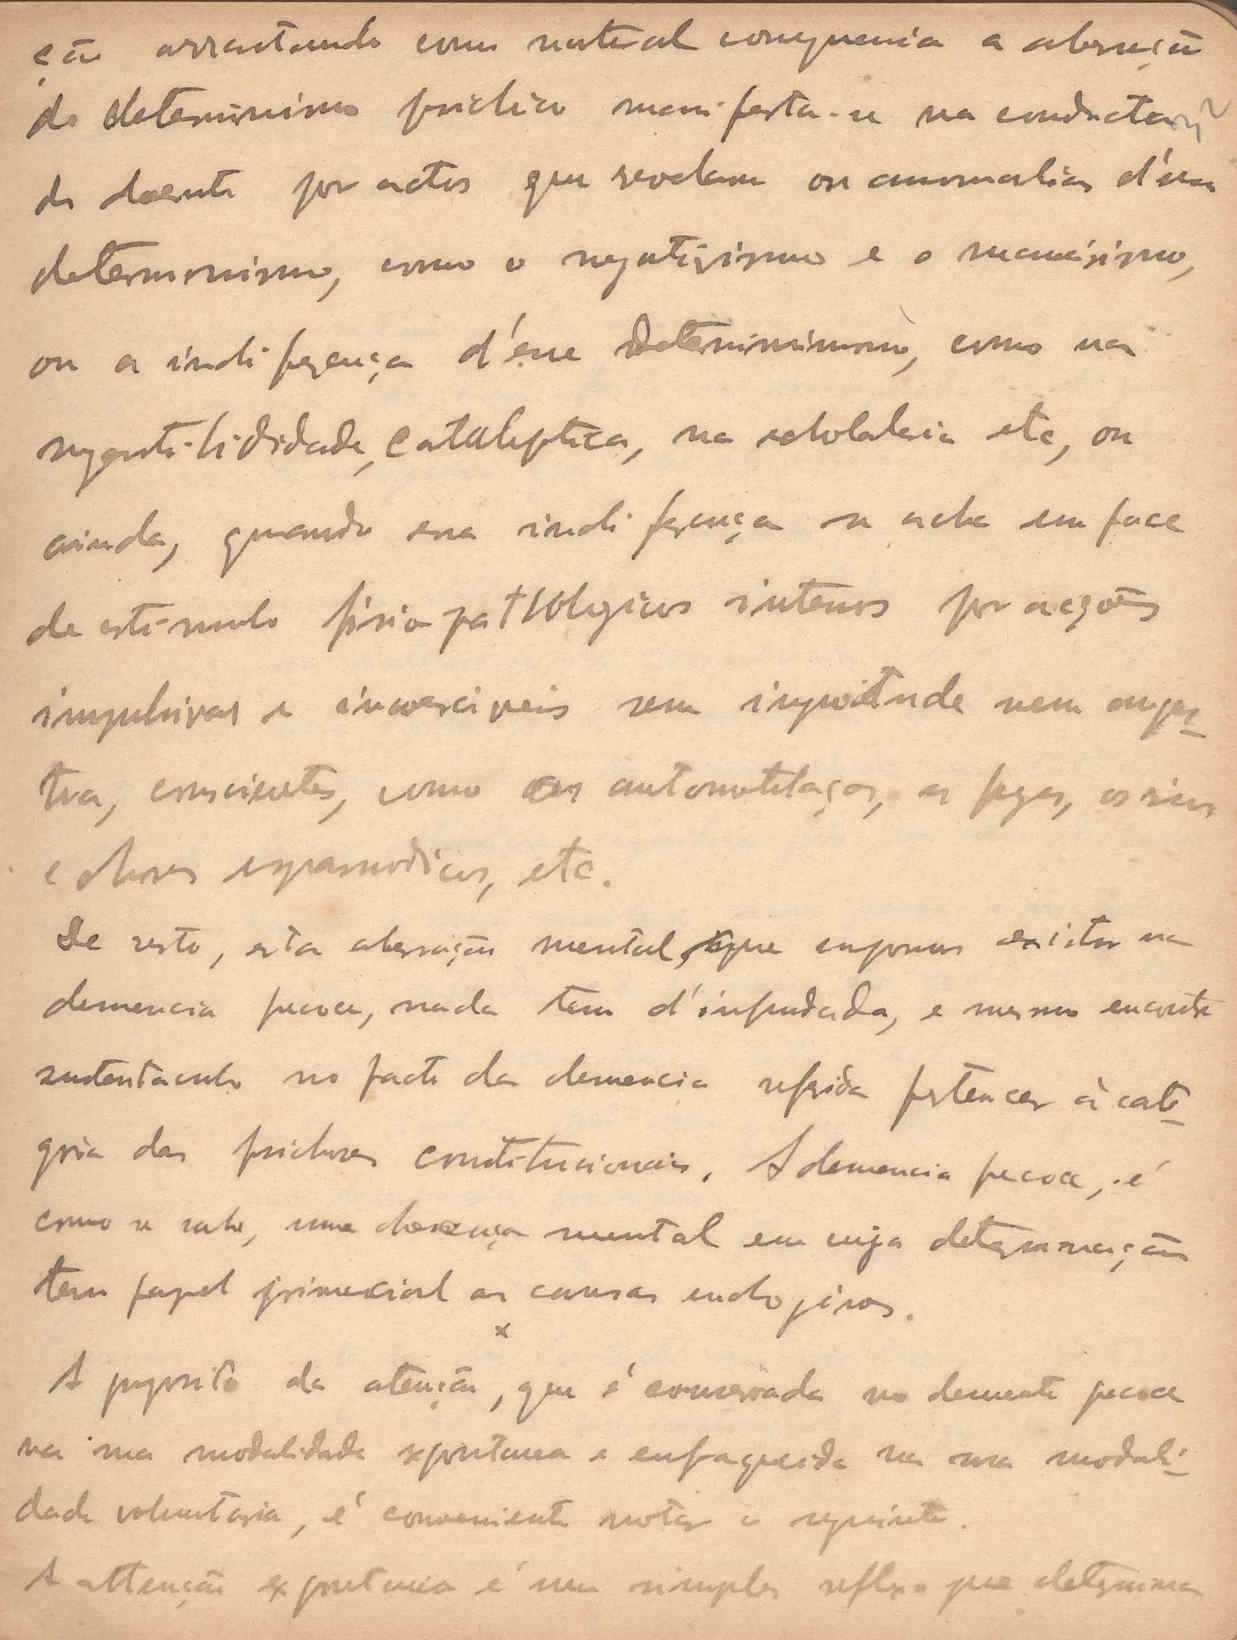 ção arrastando como natural consequencia a aberração
do determinismo psichico manifesta-se na conducta
do doente por actos que revelam ou anomalias d'esse
determinismo, como o negativismo e o maneirismo,
ou a indiferença d'esse determinismo, como na
sugestibilidade, cataleptica, na echolalia etc, ou
ainda, quando essa indiferença se acha em face
de estimulo fisiopatologicos internos por acções
impulsivas e incoerciveis sem inquietude nem angus-
tia, conscientes, como as automutilações, as fugas, os risos
e choros espasmodicos, etc.
De resto, esta aberração mental, que supomos existir na
demencia precoce, nada tem d'infundada, e mesmo encontra
sustentaculo no facto da demencia referida pertencer à cate-
goria das psichoses constitucionais. A demencia precoce, é
como se sabe, uma doença mental em cuja determinação
tem papel primacial as causas endogenas.
x
A proposito da atenção, que é conservada no demente precoce
na sua modalidade espontanea e enfraquecida na sua modali-
dade voluntaria, é conveniente notar o seguinte.
A attenção espontanea é um simples reflexo que determina